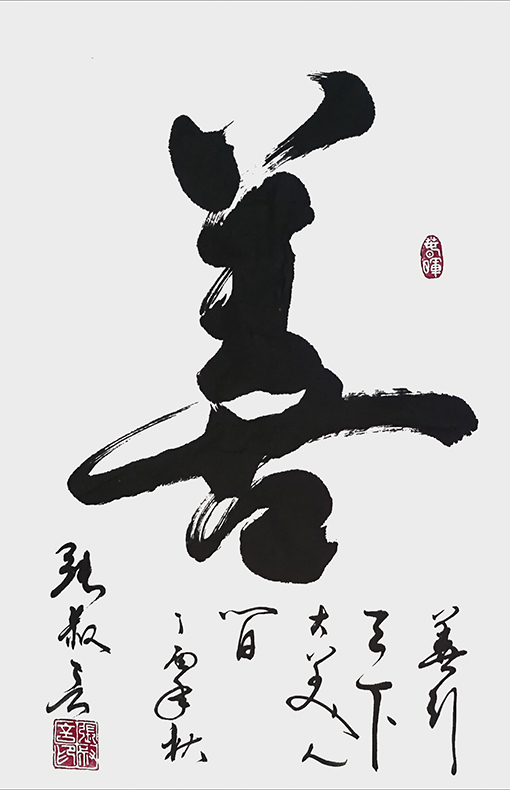 善
善行
天下
大美人
间
丁酉年秋